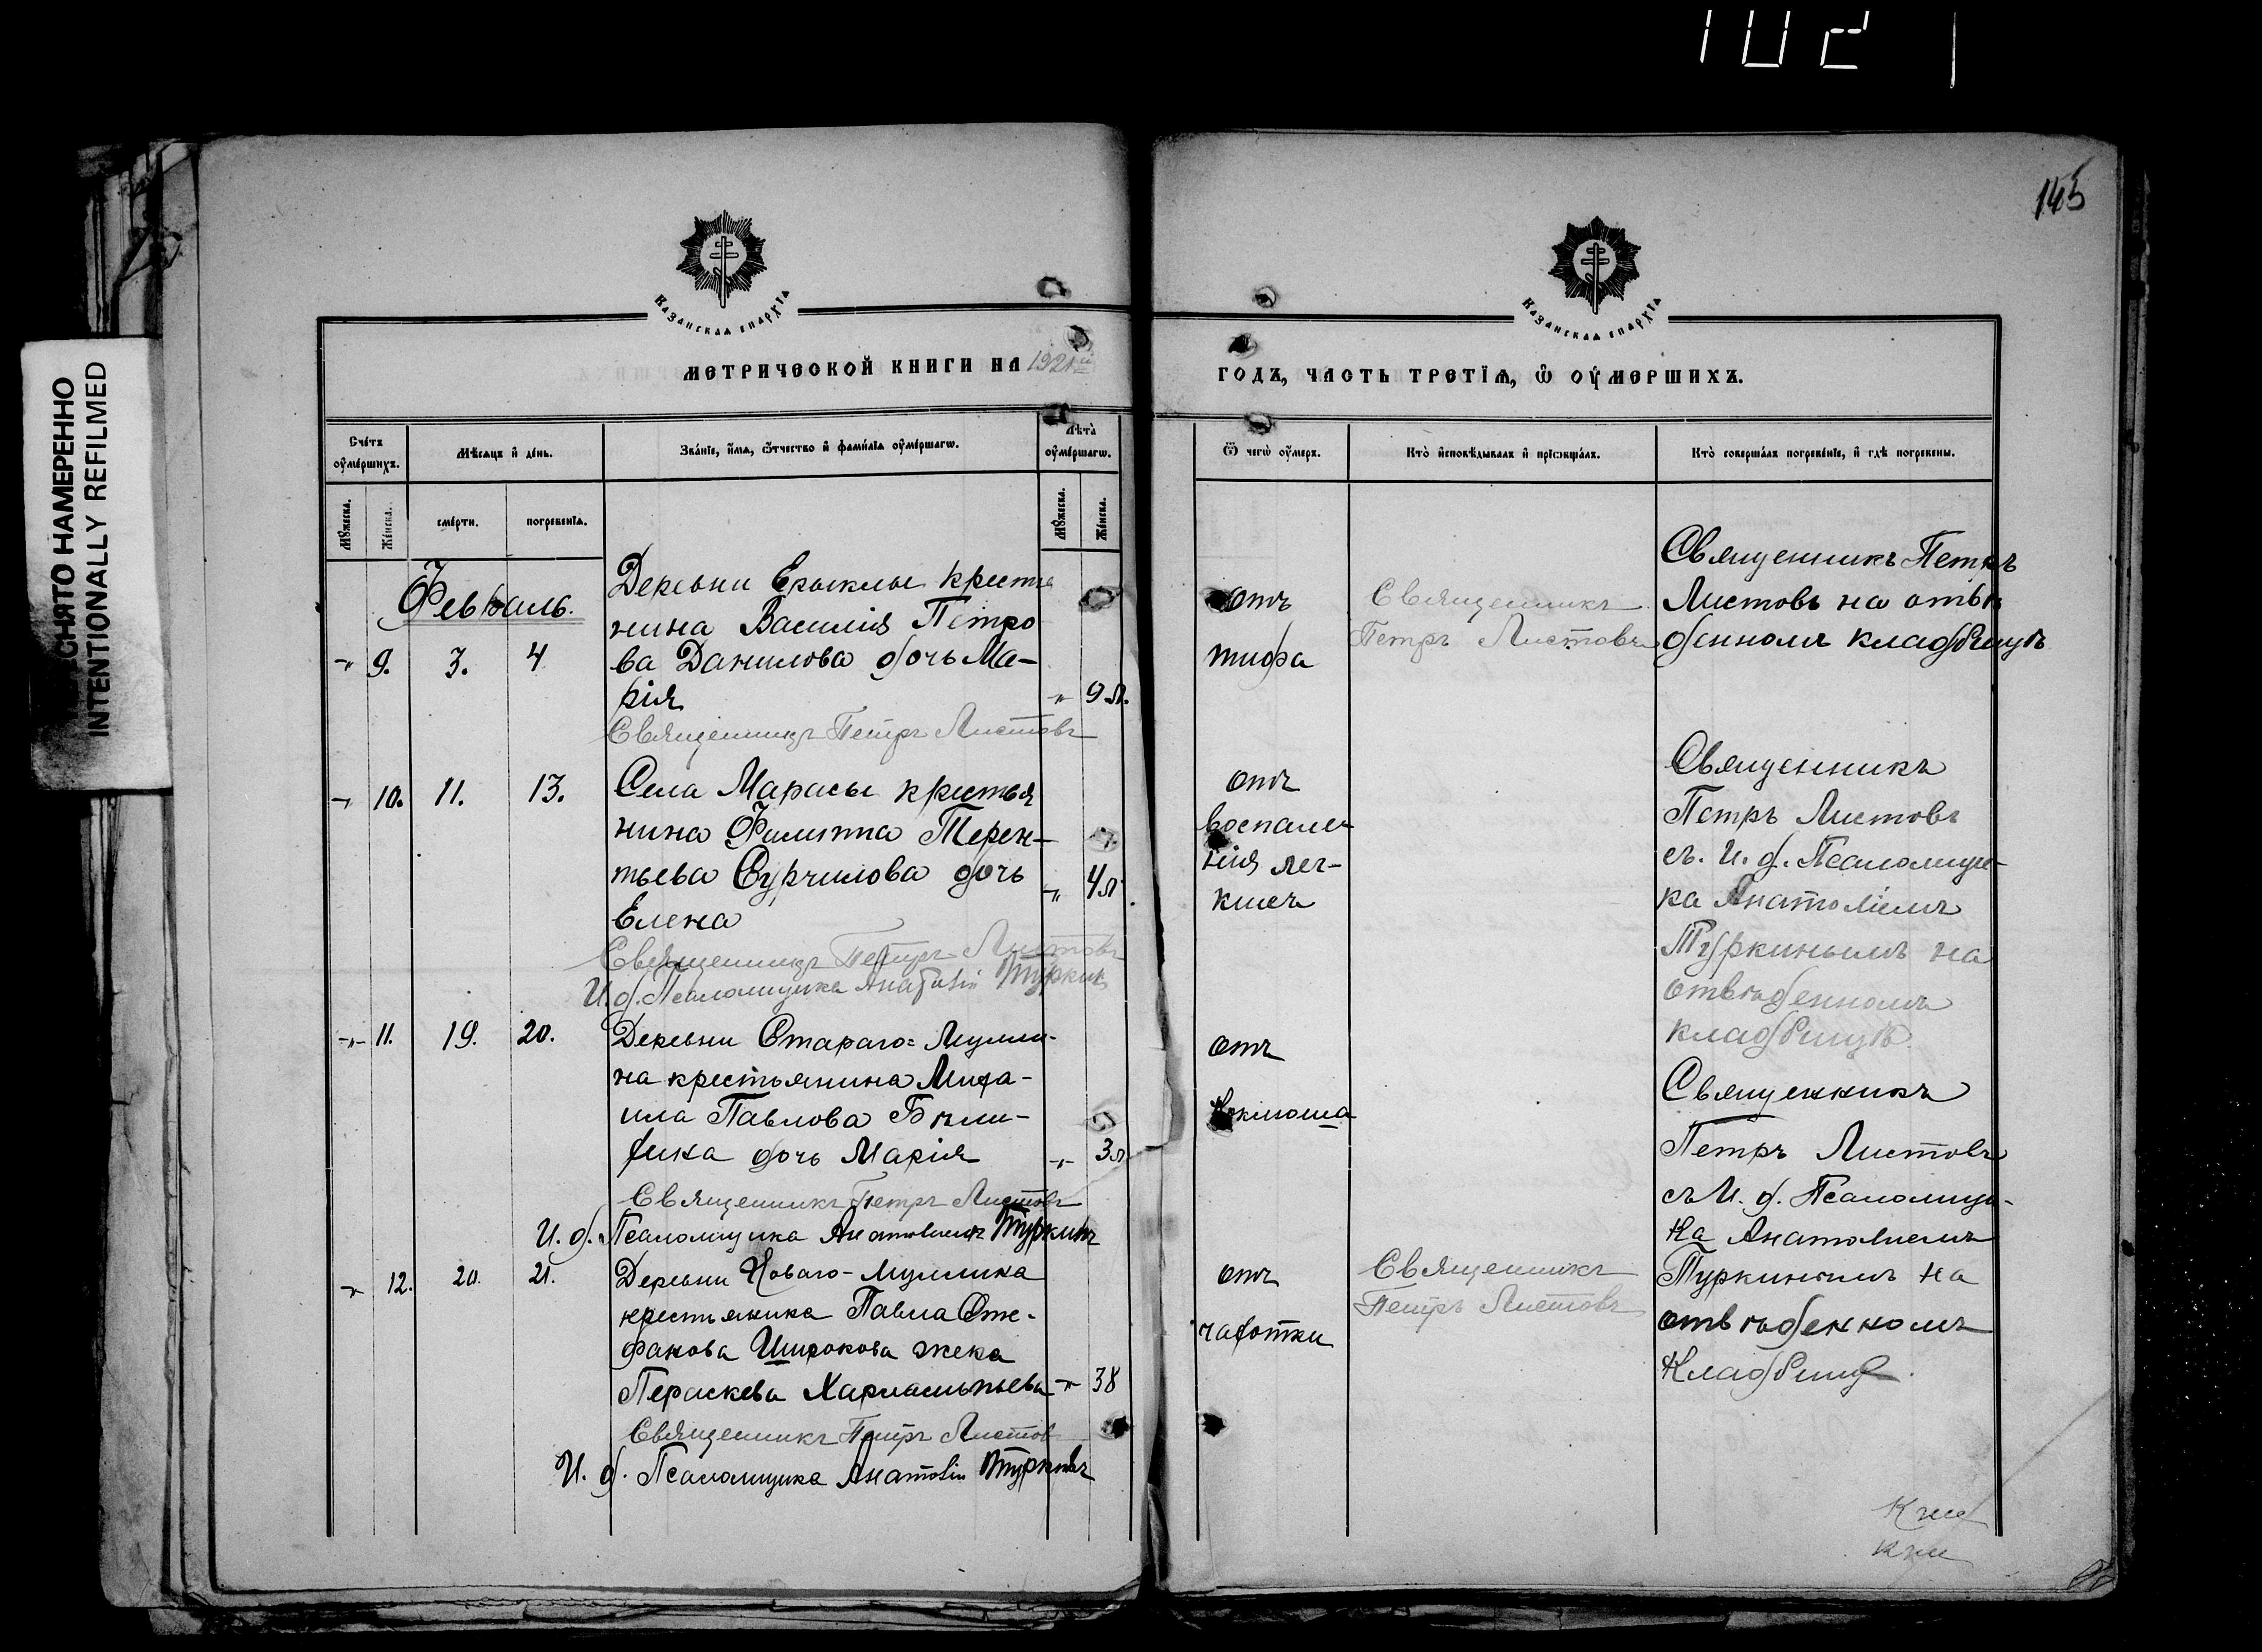 145
СНЯТО НАМЕРЕННО
INTENTIONALLY REFILMED
Казанская епархїя
Казанская епархїя
Метрической книги на 1921й
годъ, часть третїѧ, ѿ оумершихъ.
Счетъ оумершихъ.
Мѣсяцъ и день.
Званїе, имя, отчество и фамилїя оумершагѡ.
Лѣта оумершагѡ.
Ѿ чегѡ оумеръ.
Кто исповѣдывалъ и прїѡбщалъ.
Кто совершалъ погребенїе, и гдѣ погребены.
Мужеска.
Женска.
смерти.
погребенїя.
Мужеска.
Женска.
Февраль.
-"- 9. 3. 4
Деревни Ерыклы крестья
нина Василія Петро
ва Данилова дочь Ма-
рія
-"- 9 л.
Священникъ Петръ Листовъ
отъ
тифа
Священникъ
Петръ Листовъ
Священникъ Петръ
Листовъ на отве
денномъ кладбищѣ
-"- 10. 11. 13.
Села Марасы крестья
нина Филиппа Терен-
тьева Сурчилова дочь
Елена
-"- 4 л
Священникъ Петръ Листовъ
И. д. Псаломщика Анатолій Туркинъ
отъ
воспале-
нія лег-
кихъ
Священникъ
Петръ Листовъ
съ. И. д. Псаломщи-
ка Анатоліемъ
Туркинымъ на
отведенномъ
кладбищѣ.
-"- 11. 19. 20.
Деревни Стараго=Мулли-
на крестьянина Миха-
ила Павлова
дочь Марія
-"- 3 л
Священникъ Петръ Листовъ
И. д. Псаломщика Анатолій Туркинъ
отъ
коклюша
Священникъ
Петръ Листовъ
съ И. д. Псаломщи-
ка Анатоліемъ
Туркинымъ на
отведенномъ
Кладбищѣ.
-"- 12. 20. 21.
Деревни Новаго-Муллина
крестьянина Павла Сте-
фанова Широкова жена
Параскева Харлампьева -"- 38
Священникъ Петръ Листовъ
И. д. Псаломщика Анатолій Туркинъ
отъ
чахотки
Священникъ
Петръ Листовъ